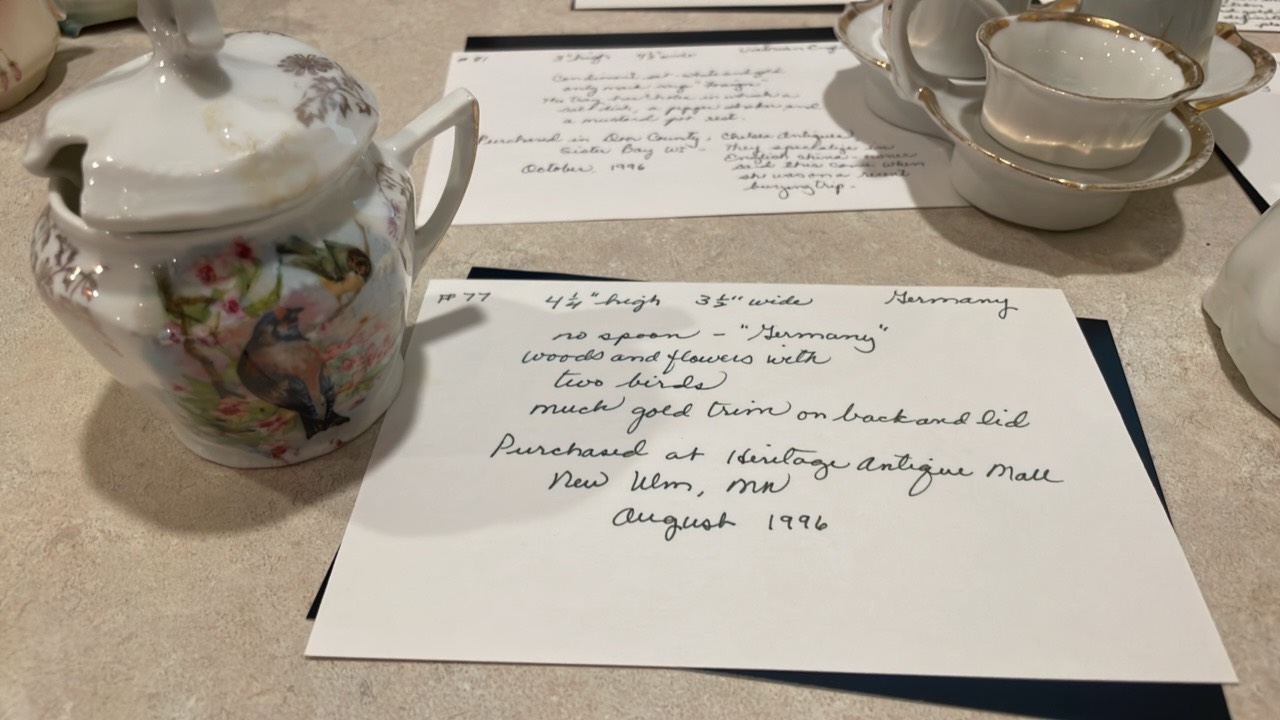 #81 3" high 4½" wide Victorian
Condiment set - white and gold
only mark says "Foreign"
The Tray has holes in which a
salt dish, a pepper shaker and
a mustard pot rest.
Purchased in Door County, Chelsea Antiques
Sister Bay WI - They specialize in
October, 1996 English china - owner
said this came when
she was on a recent
buying trip -
#77 4 ¼" high 3 ½" wide Germany
no spoon - "Germany"
woods and flowers with
two birds
much gold trim on back and lid
Purchased at Heritage Antique Mall
New Ulm, MN
August 1996